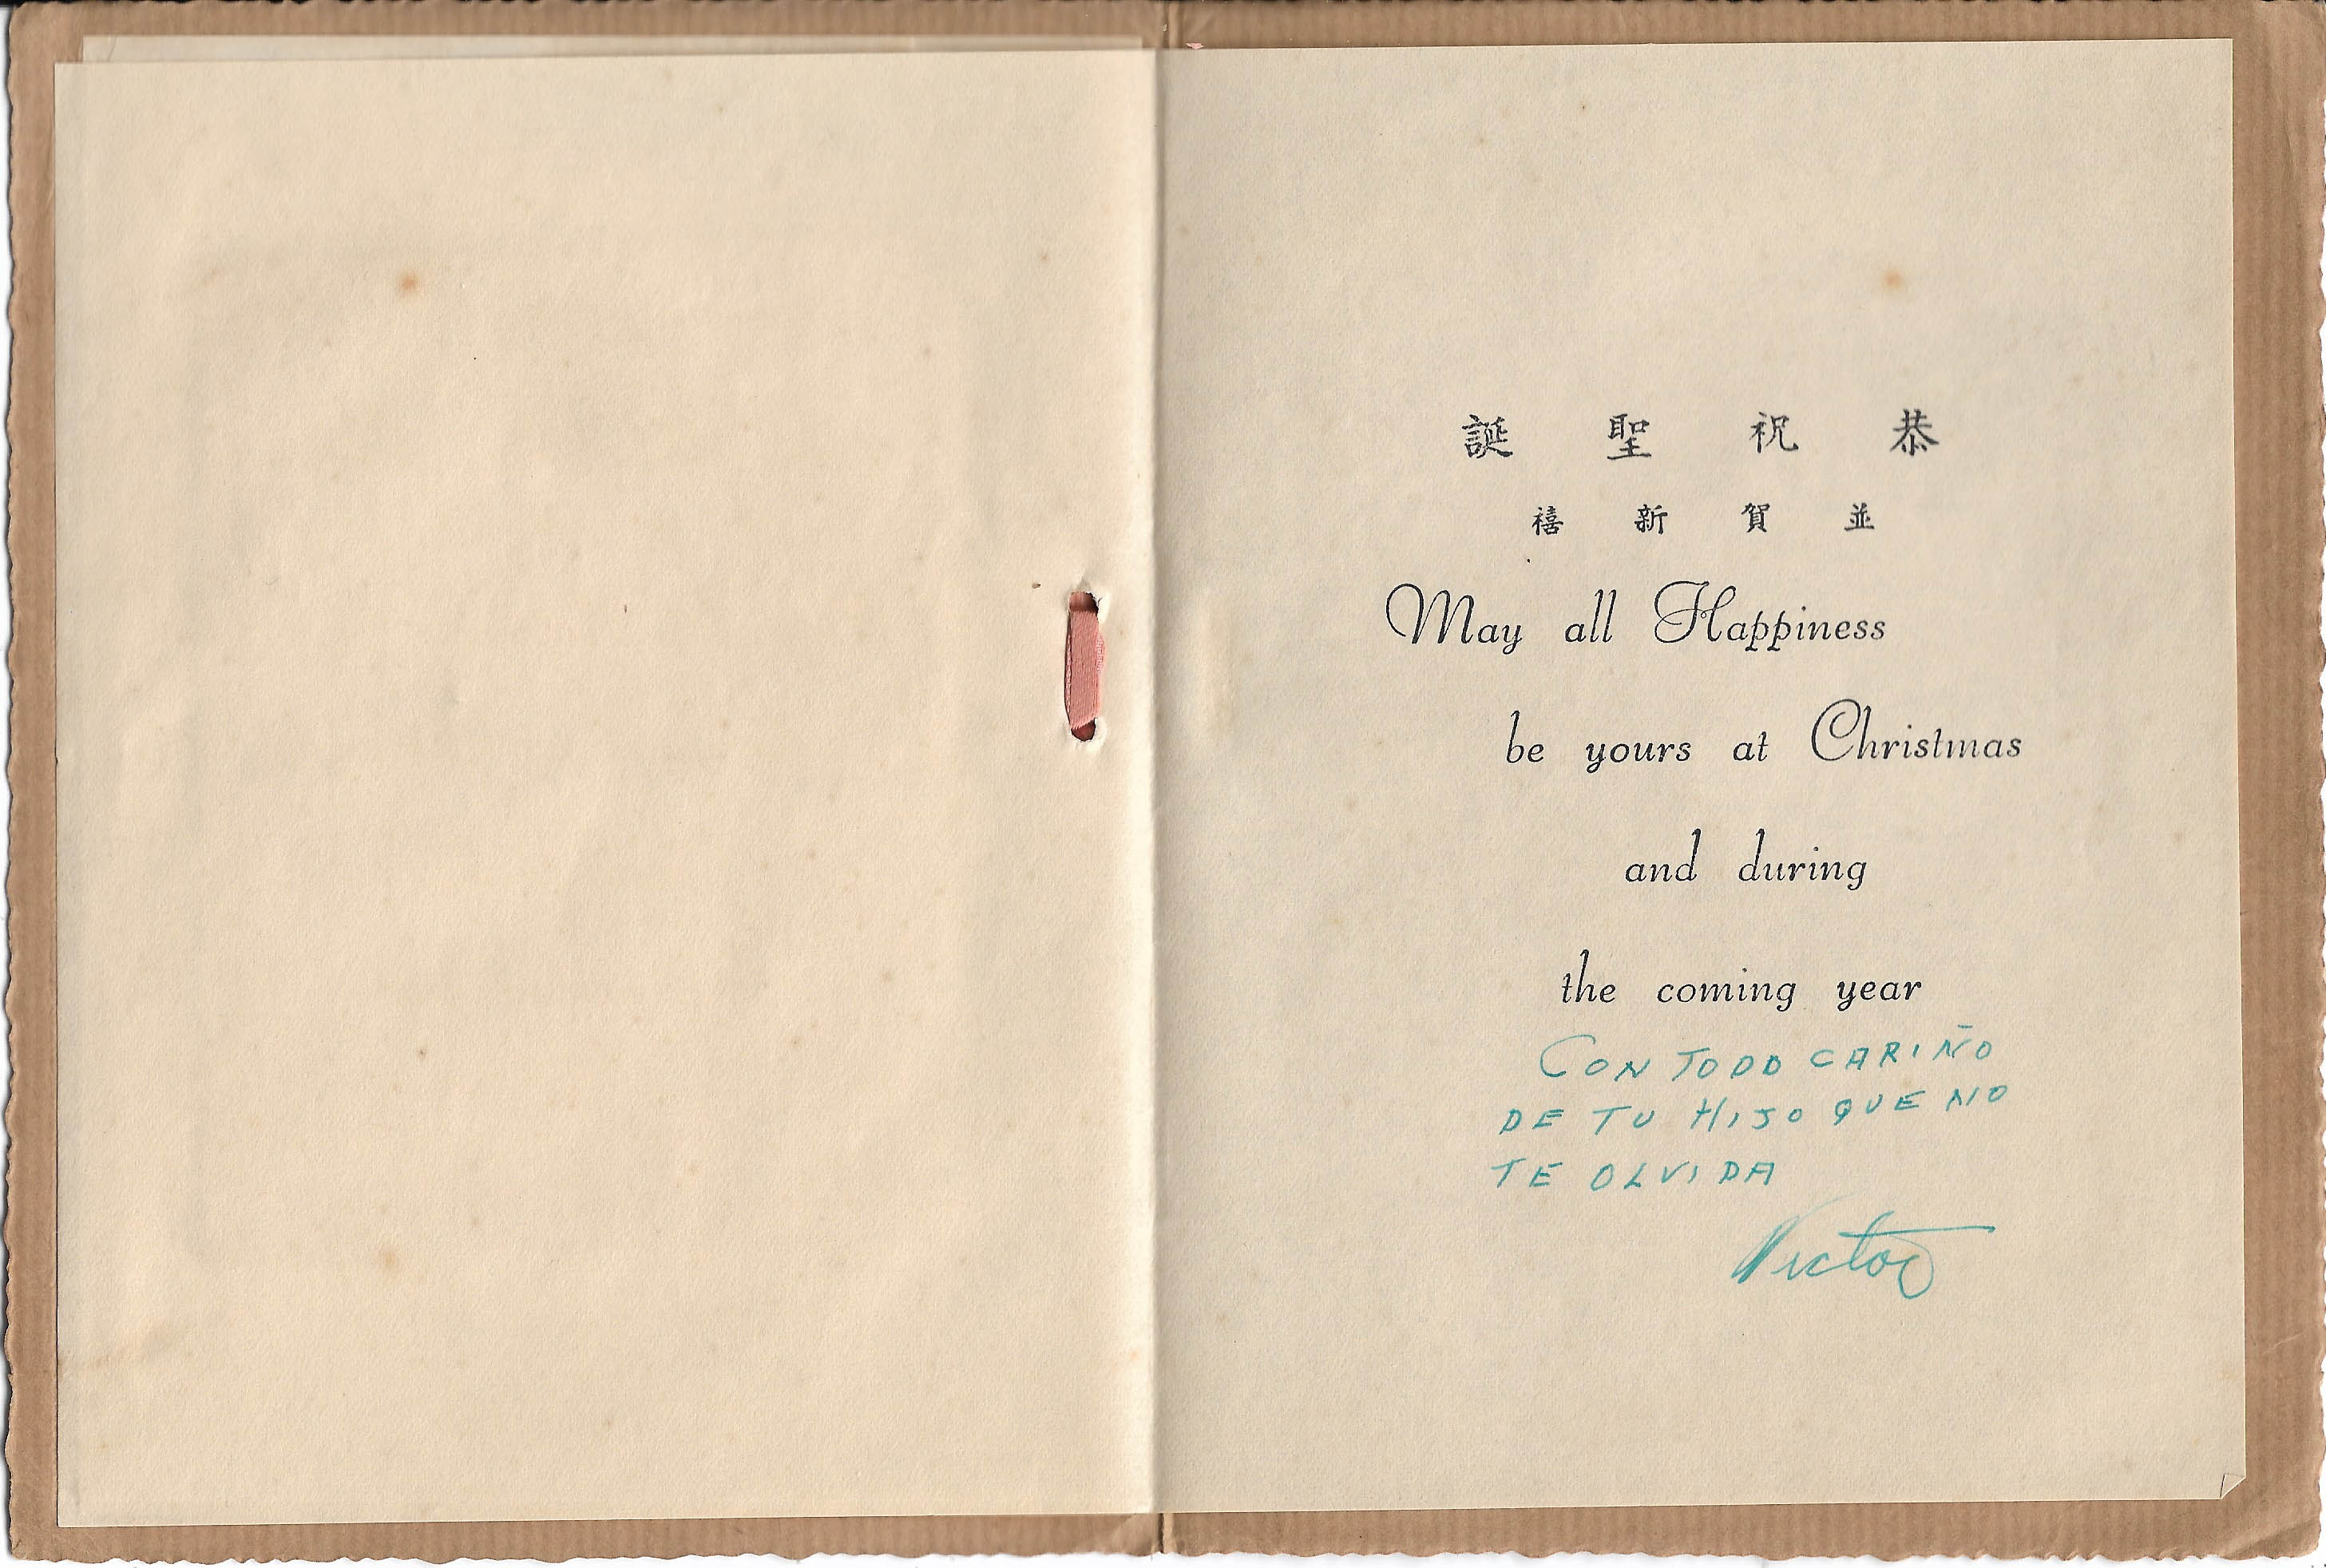 恭祝聖誕
並賀新禧
May all Happiness
be yours at Christmas
and during
the coming year
CON TODO CARIÑO
DE TU HIJO QUE NO
TE OLVIDA
Victor